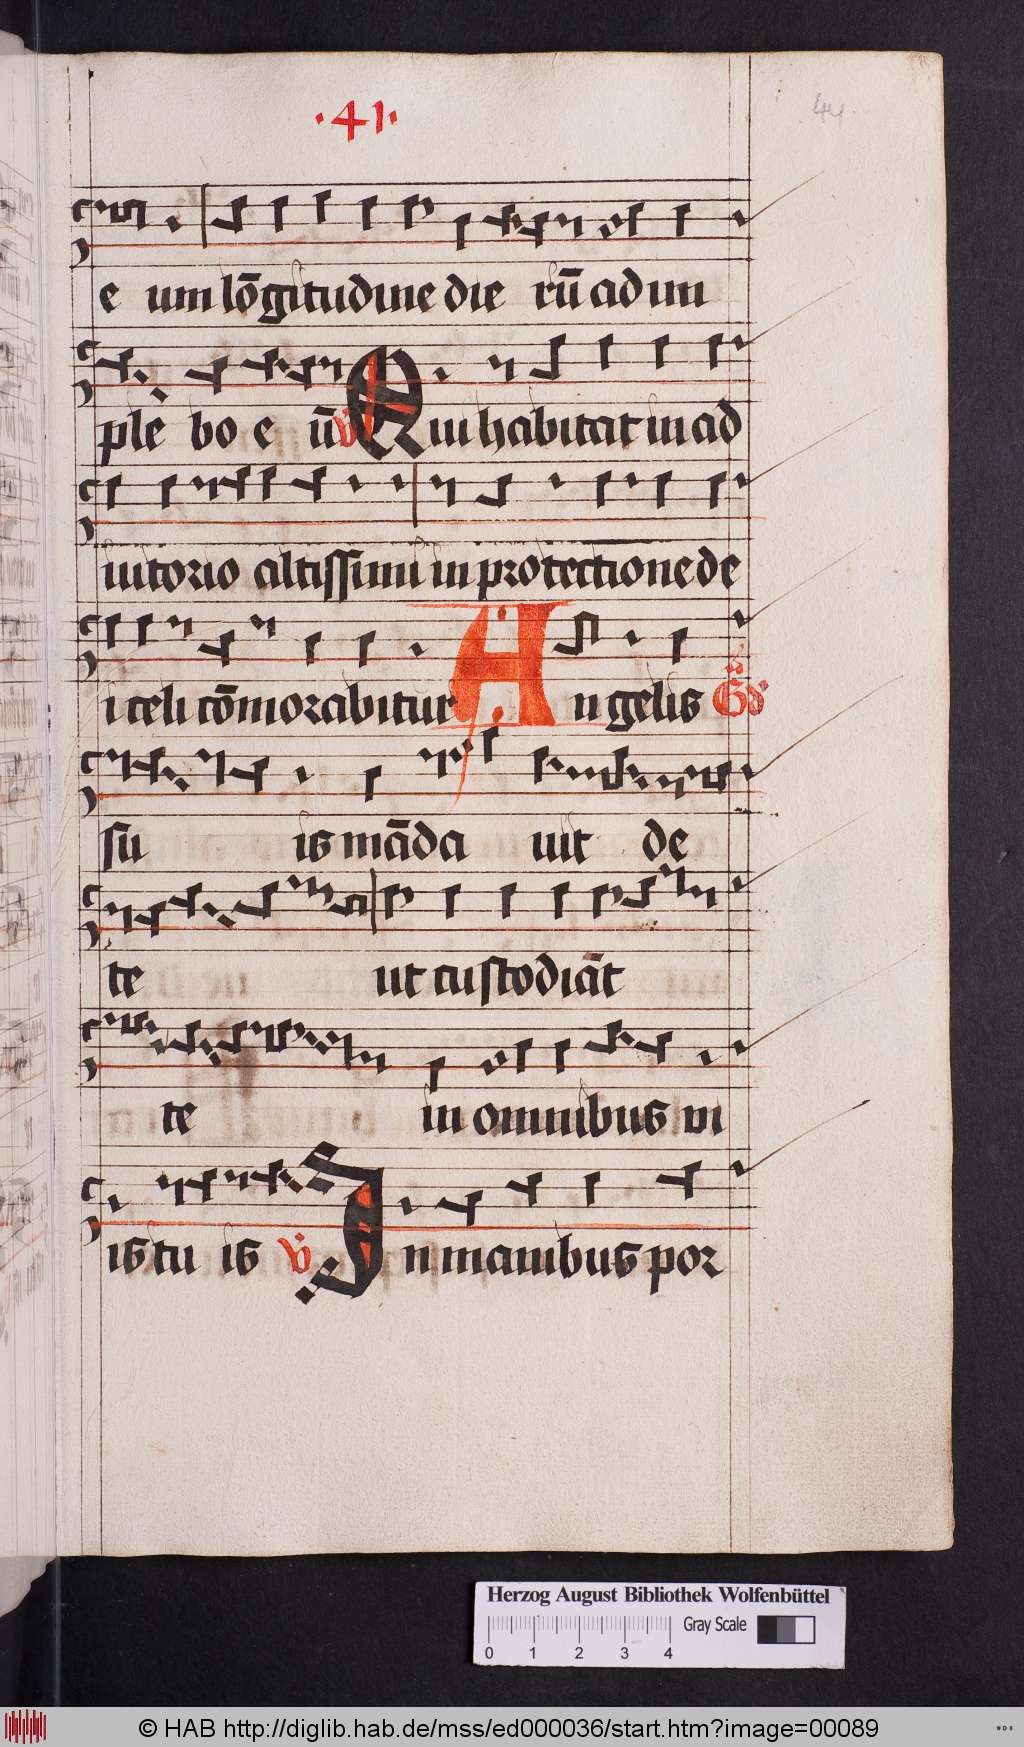 ·41·
44
e um lōgitudine die rū ad im
ple bo e ū v Qui habitat in ad
iutorio altissimi in protectione de
i celi cōmorabitur Angelis Gͣd
su is māda uit de
te ut custodiāt
te in omnibus vi
is tu is v In manibus por
Herzog August Bibliothek Wolfenbüttel
Gray Scale
0 1 2 3 4
© HAB http://diglib.hab.de/mss/ed000036/start.htm?image=00089